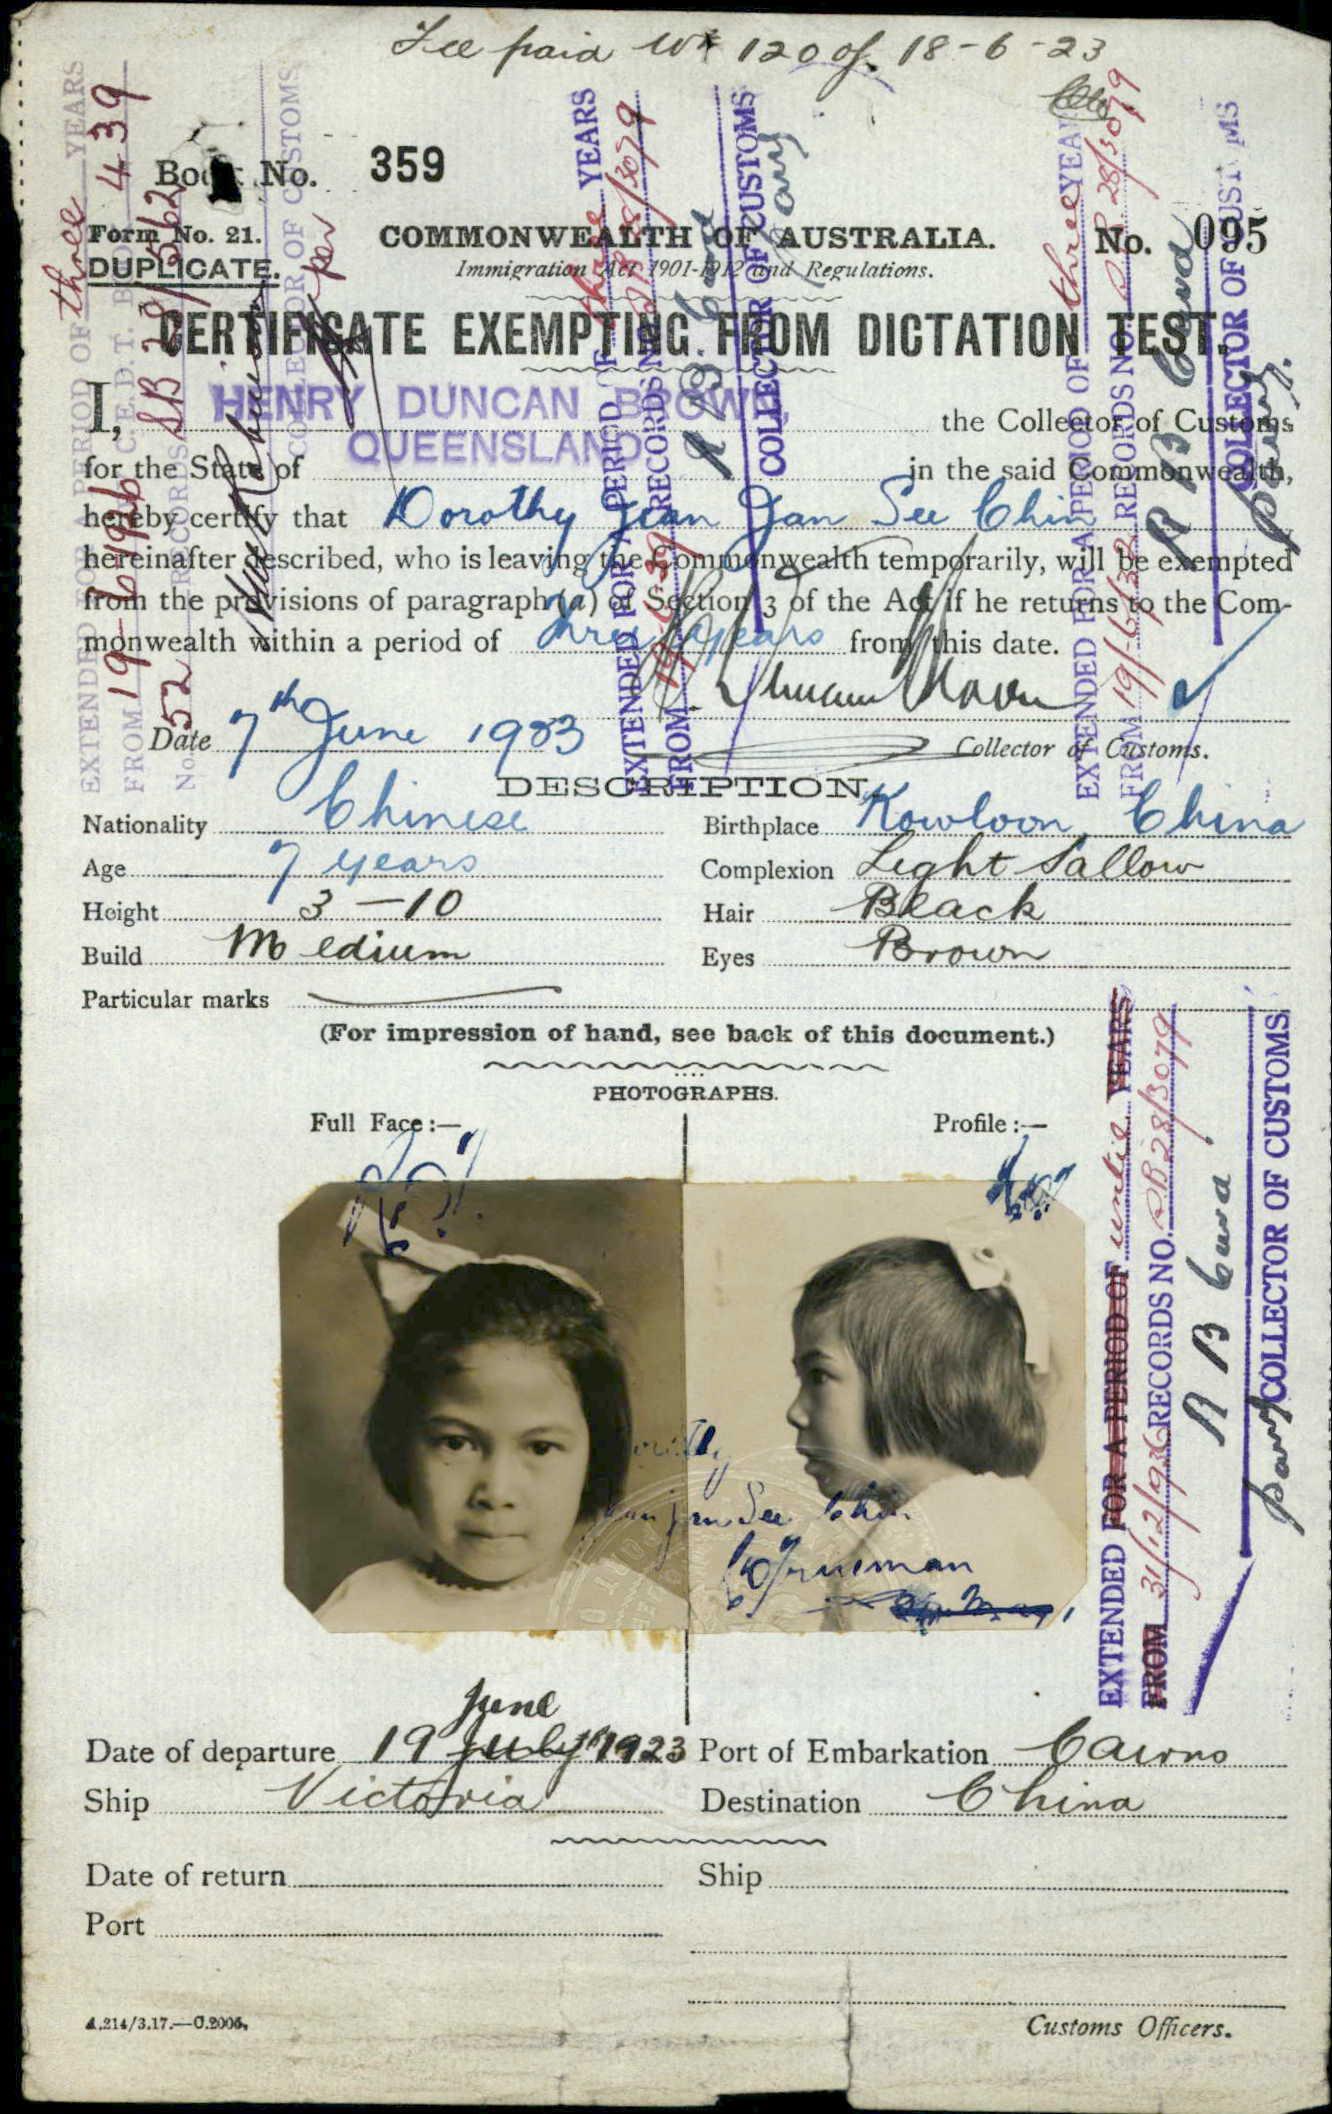 Fee paid 120 of 18-6-23
Book No. 359
Form No. 21.
DUPLICATE.
COMMONWEALTH OF AUSTRALIA.
No. 095
Immigration Act 1901-1912 and Regulations.
CERTIFICATE EXEMPTING FROM DICTATION TEST.
I, HENRY DUNCAN BROWN, the Collector of Customs
for the State of QUEENSLAND in the said Commonwealth,
hereby certify that Dorothy Jean Jan See Chin
hereinafter described, who is leaving the Commonwealth temporarily, will be exempted
from the provisions of paragraph (a) of Section 3 of the Act if he returns to the Com-
monwealth within a period of three years from this date.
Date 7th June 1923
Collector of Customs.
DESCRIPTION.
Nationality Chinese
Birthplace Kowloon, China
Age 7 years
Complexion Light Sallow
Height 3-10
Hair Black
Build Medium
Eyes Brown
Particular marks
(For impression of hand, see back of this document.)
PHOTOGRAPHS.
Full Face:—
Profile:—
Dorothy
Jean Jan See Chin
June
Date of departure 19 July 1923
Port of Embarkation Cairns
Ship Victoria
Destination China
Date of return
Ship
Port
A.214/3.17.—C.2006.
Customs Officers.
EXTENDED FOR A PERIOD OF three YEARS
FROM 19-6-1926 C.E.D.T. 439
No. 52 RECORDS SB 28/
COLLECTOR OF CUSTOMS
per
EXTENDED FOR A PERIOD OF three YEARS
FROM RECORDS NO. SB 28/3079
COLLECTOR OF CUSTOMS
EXTENDED FOR A PERIOD OF three YEARS
FROM 19/6/32 RECORDS NO. SB 28/3079
COLLECTOR OF CUSTOMS
EXTENDED FOR A PERIOD OF until YEARS
FROM 31/12/936 RECORDS NO. SB 28/3079
COLLECTOR OF CUSTOMS